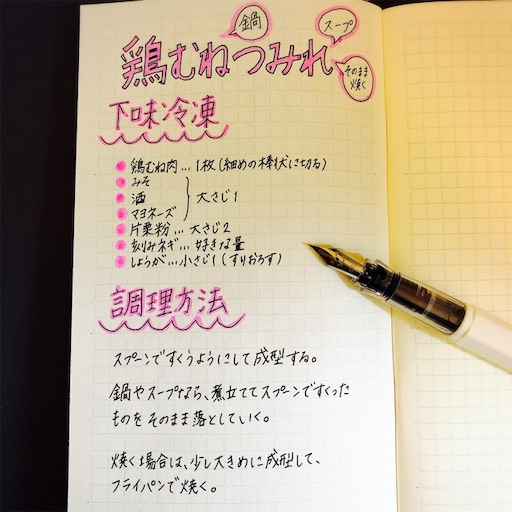 鍋
スープ
鶏むねつみれ
そのまま
焼く
下味冷凍
鶏むね肉…1枚(細めの棒状に切る)
みそ
酒
大さじ1
マヨネーズ
片栗粉…大さじ2
刻みネギ…好きな量
しょうが…小さじ1(すりおろす)
調理方法
スプーンですくうようにして成型する。
鍋やスープなら、煮立ててスプーンですくった
ものをそのまま落としていく。
焼く場合は、少し大きめに成型して、
フライパンで焼く。